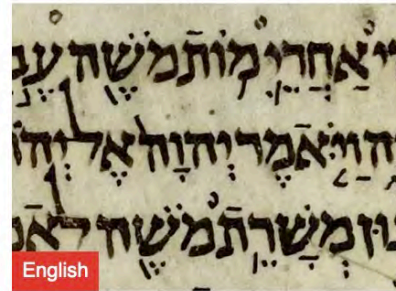 י אַחֲרֵי מוֹת מֹשֶׁה עֶב
ה וַיֹּאמֶר יְהוָה אֶל יְהו
וּן מְשָׁרֵת מֹשֶׁה לֵאמ
English